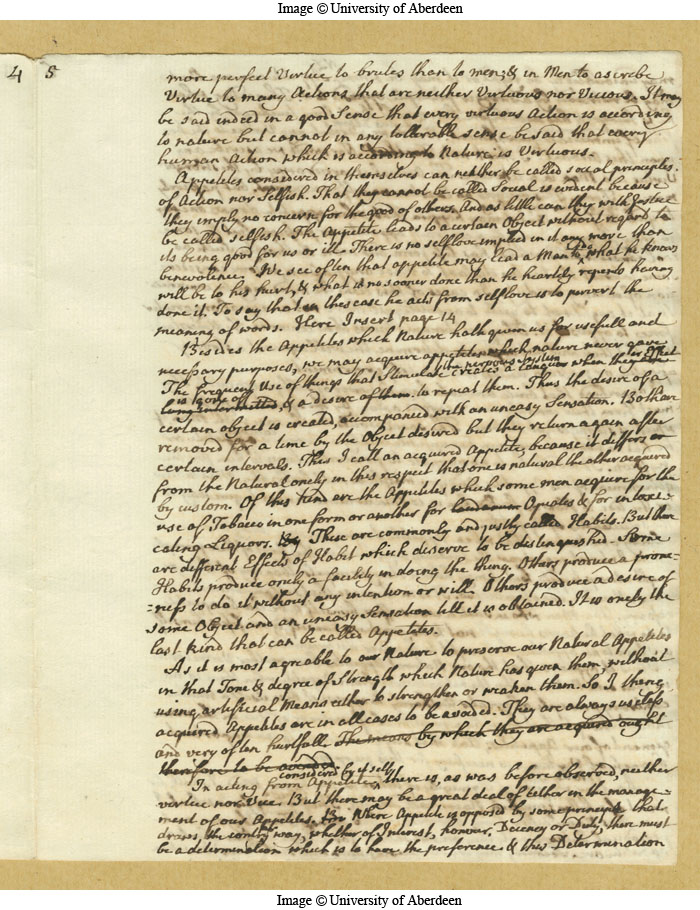 Image © University of Aberdeen
4 5
more perfect Virtue to brutes than to men; & in Men to ascribe
Virtue to many Actions that are neither Virtuous nor Vicious. It may
be said indeed in a good Sense that every virtuous Action is according
to nature but cannot in any tollerable sense be said that every
human Action which is according to Nature is Virtuous.
Appetites considered in themselves can neither be called social principles
of Action nor Selfish. That they cannot be called Social is evident because
they imply no concern for the good of others. And as little can they with Justice
be called selfish. The Appetite leads to a certain Object without regard to
its being good for us or ill. There is no selflove implied in it any more than
benevolence. We see often that appetite may lead a Man to what he knows
will be to his hurt, & what is no sooner done than he heartily repents having
done it. To say that in this case he acts from selflove is to pervert the
meaning of words. Here Insert page 14
Besides the Appetites which Nature hath given us for usefull and
necessary purposes, we may acquire appetites which nature never gave.
The frequent Use of things that Stimulate the nervous system creates a Languor when their Effect
is gone off long intermitted, & a desire of them to repeat them. Thus the desire of a
certain object is created, accompanied with an uneasy Sensation. Both are
removed for a time by the Object desired but they return again after
certain intervals. This I call an acquired Appetite, because it differs
from the Natural onely in this respect that one is natural the other acquired
by custom. Of this kind are the Appetites which some men acquire for the
use of Tobacco in one form or another for Opiates & for intoxi-
cating Liquors. These are commonly and justly called Habits. But there
are different Effects of Habit which deserve to be distinguished. Some
Habits produce onely a facility in doing the thing. Others produce a prone-
=ness to do it without any intention or will. Others produce a desire of
some Object and an uneasy Sensation till it is obtained. It is onely the
last kind that can be called Appetites.
As it is most agreable to our Nature to preserve our Natural Appetites
in that Tone & degree of Strength which Nature has given them, without
using artificial Means either to strengthen or weaken them. So I think
acquired Appetites are in all cases to be avoided. They are always useless
and very often hurtfull. The means by which they are acquired ought
therefore to be avoided
In acting from Appetite considered by itself, there is, as was before observed, neither
virtue nor Vice. But there may be a great deal of Either in the manage-
ment of our Appetites. Where Appetite is opposed by some principle that
draws the contry way, whether of Interest, honour, Decency or Duty, there must
be a determination which is to have the preference & this Determination
Image © University of Aberdeen